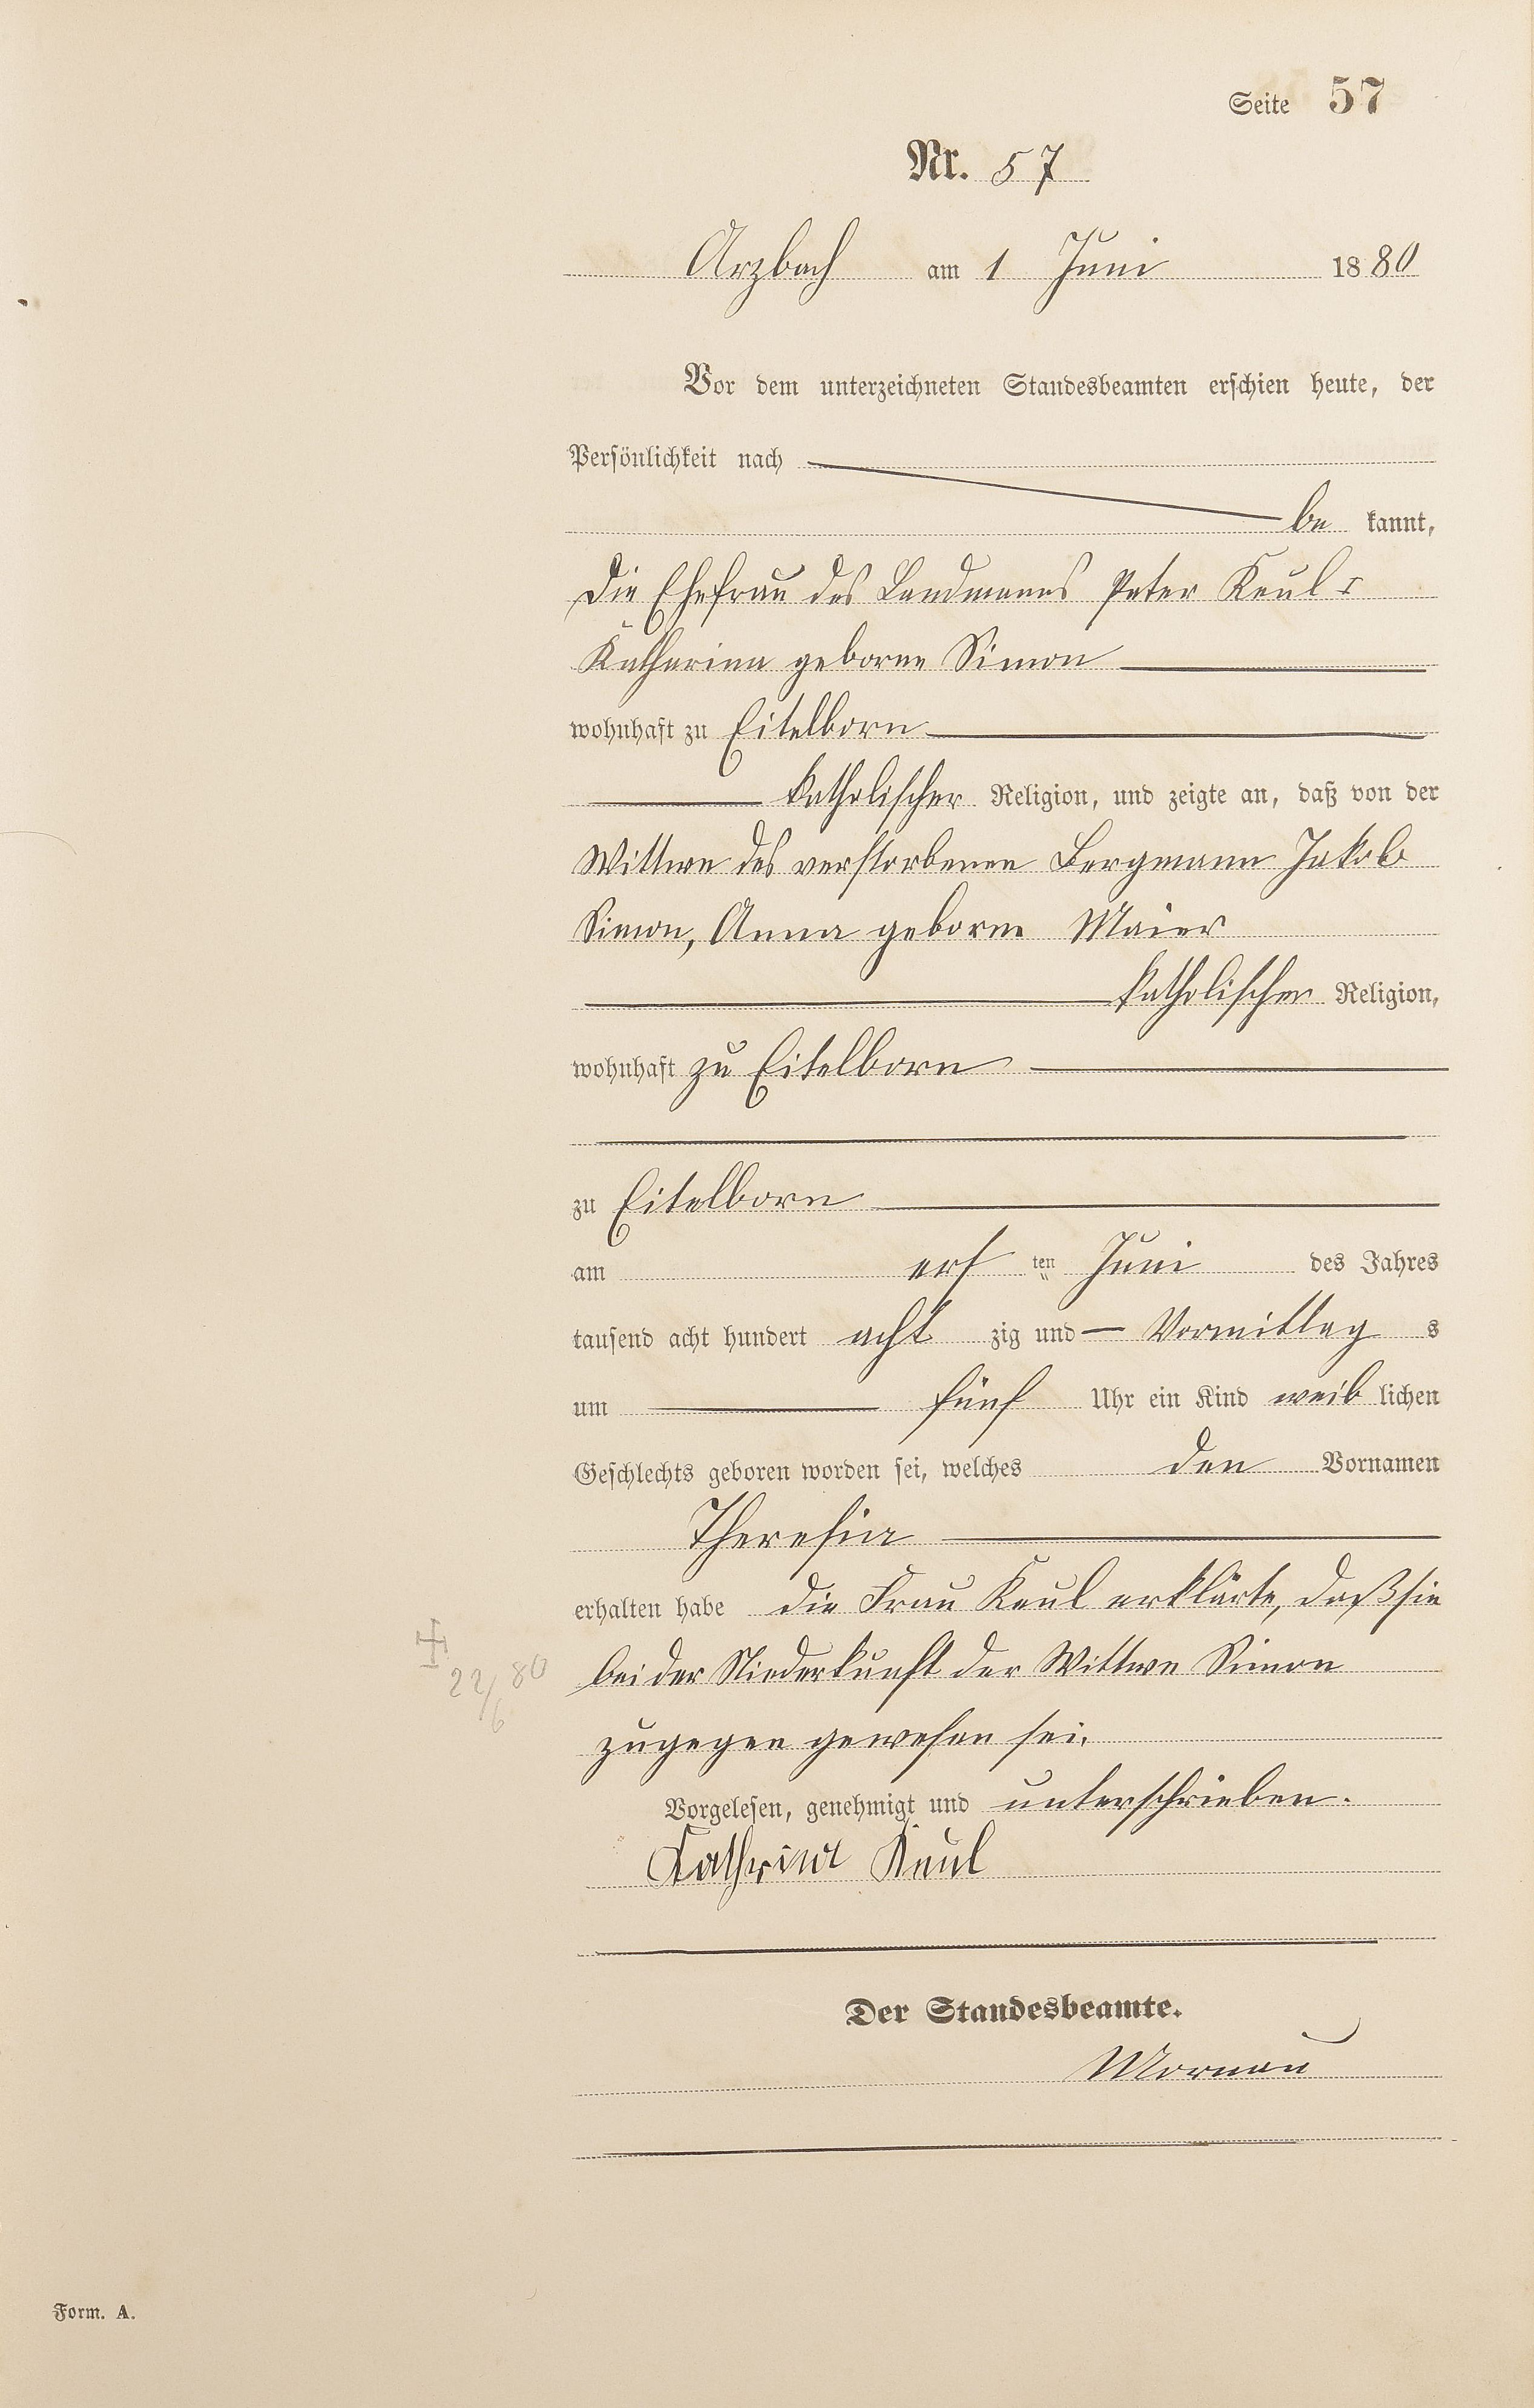 Seite 57
Nr. 57
Arzbach am 1 Juni 1880
Vor dem unterzeichneten Standesbeamten erschien heute, der
Persönlichkeit nach
be kannt,
die Ehefrau des Landmanns Peter Keul I
Katharina geborne Simon
wohnhaft zu Eitelborn
katholischer Religion, und zeigte an, daß von der
Wittwe des verstorbenen Bergmann Jakob
Simon, Anna geborne Maier
katholischer Religion,
wohnhaft zu Eitelborn
zu Eitelborn
am erst ten Juni des Jahres
tausend acht hundert acht zig und Vormittag s
um fünf Uhr ein Kind weib lichen
Geschlechts geboren worden sei, welches den Vornamen
Theresia
erhalten habe die Frau Keul erklärte, daß sie
bei der Niederkunft der Wittwe Simon
zugegen gewesen sei.
22/6 80
Vorgelesen, genehmigt und unterschrieben.
Kathrina Keul
Der Standesbeamte.
Mornau
Form. A.